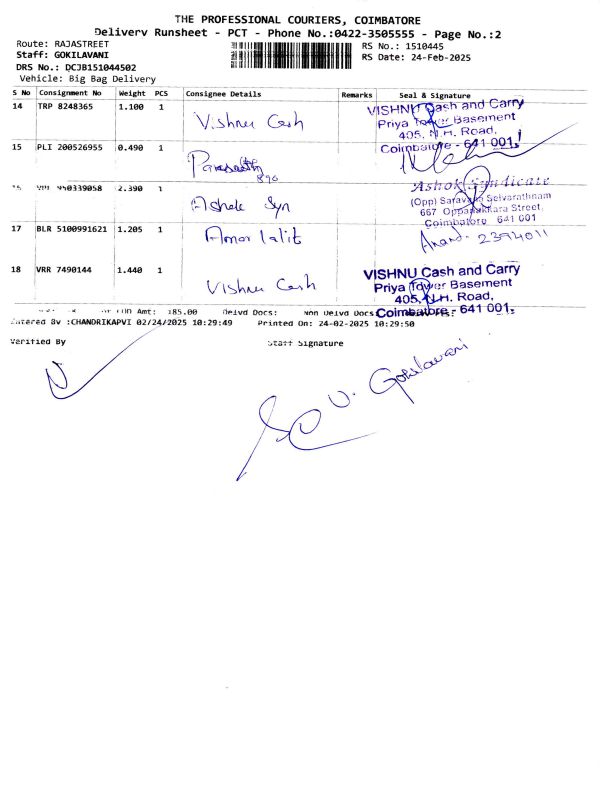 THE PROFESSIONAL COURIERS, COIMBATORE
Delivery Runsheet - PCT - Phone No.:0422-3505555 - Page No.:2
Route: RAJASTREET
Staff: GOKILAVANI
DRS No.: DCJB151044502
Vehicle: Big Bag Delivery
RS No.: 1510445
RS Date: 24-Feb-2025
S No Consignment No Weight PCS Consignee Details Remarks Seal & Signature
14 TRP 8248365 1.100 1 Vishnu Cash
VISHNU Cash and Carry
Priya Tower Basement
405, N.H. Road,
Coimbatore - 641 001.
15 PLI 200526955 0.490 1
896
940339058 2.390 1 Ashok Syn
Ashok Syndicate
(Opp) Saravana Selvarathnam
667 Oppanakkara Street,
Coimbatore 641 001
17 BLR 5100991621 1.205 1 Amar Lalit
Anand. 2394011
18 VRR 7490144 1.440 1 Vishnu Cash
VISHNU Cash and Carry
Priya Tower Basement
405, N.H. Road,
Coimbatore - 641 001.
Amt: 185.00 Delvd Docs: Non Delvd Docs:
Entered By :CHANDRIKAPVI 02/24/2025 10:29:49 Printed On: 24-02-2025 10:29:50
Verified By Staff Signature
V. Gokilavani